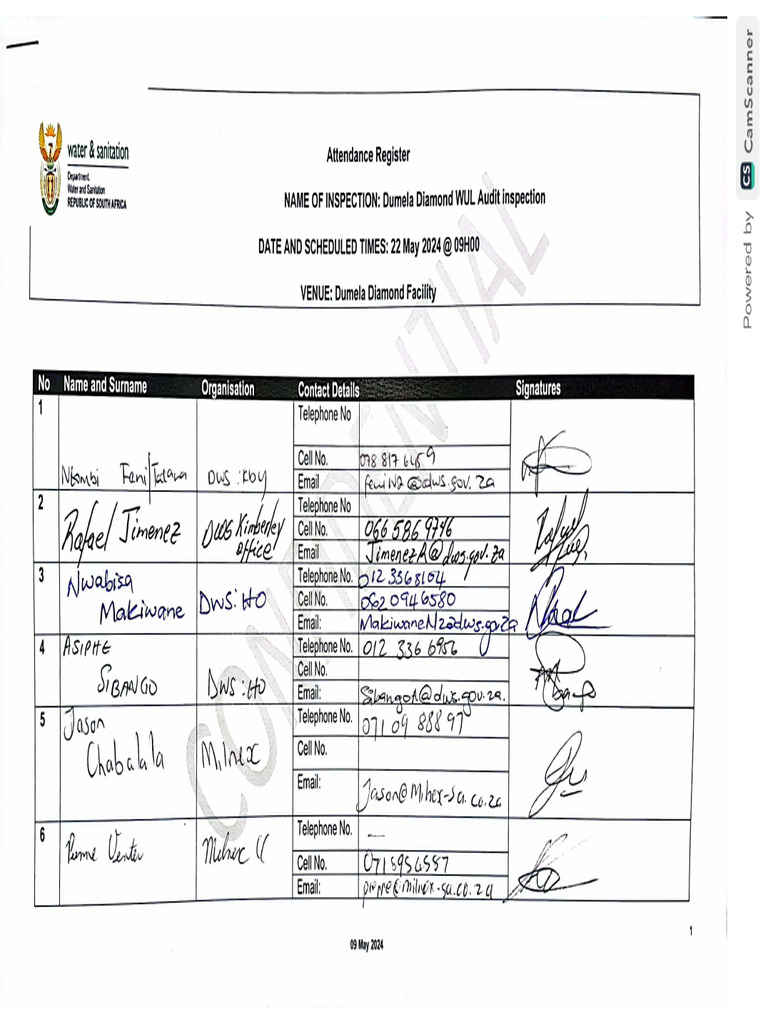 water & sanitation
Department:
Water and Sanitation
REPUBLIC OF SOUTH AFRICA
Attendance Register
NAME OF INSPECTION: Dumela Diamond WUL Audit inspection
DATE AND SCHEDULED TIMES: 22 May 2024 @ 09H00
VENUE: Dumela Diamond Facility
CONFIDENTIAL
No Name and Surname Organisation Contact Details Signatures
1 Telephone No
Cell No.
Feni DWS: Email feniN2@dws.gov.za
2 Telephone No
Rafael Jimenez DWS Kimberley Cell No. 066 586 9746
office Email JimenezR@dws.gov.za
3 Nwabisa Telephone No. 012 3368104
Makiwane DWS:HO Cell No. 0620946580
Email: MakiwaneN2@dws.gov.za
4 ASIPHE Telephone No. 012 336 6956
SIBANGO DWS:HO Cell No.
Email: SibangoA@dws.gov.za.
5 Jason Telephone No. 071 09 888 97
Chabalala Milnex Cell No.
Email: Jason@Milnex-sa.co.za
6 Telephone No. —
Venter Milnex Cell No. 0718956587
Email: @milnex-sa.co.za
09 May 2024
1
Powered by CS CamScanner